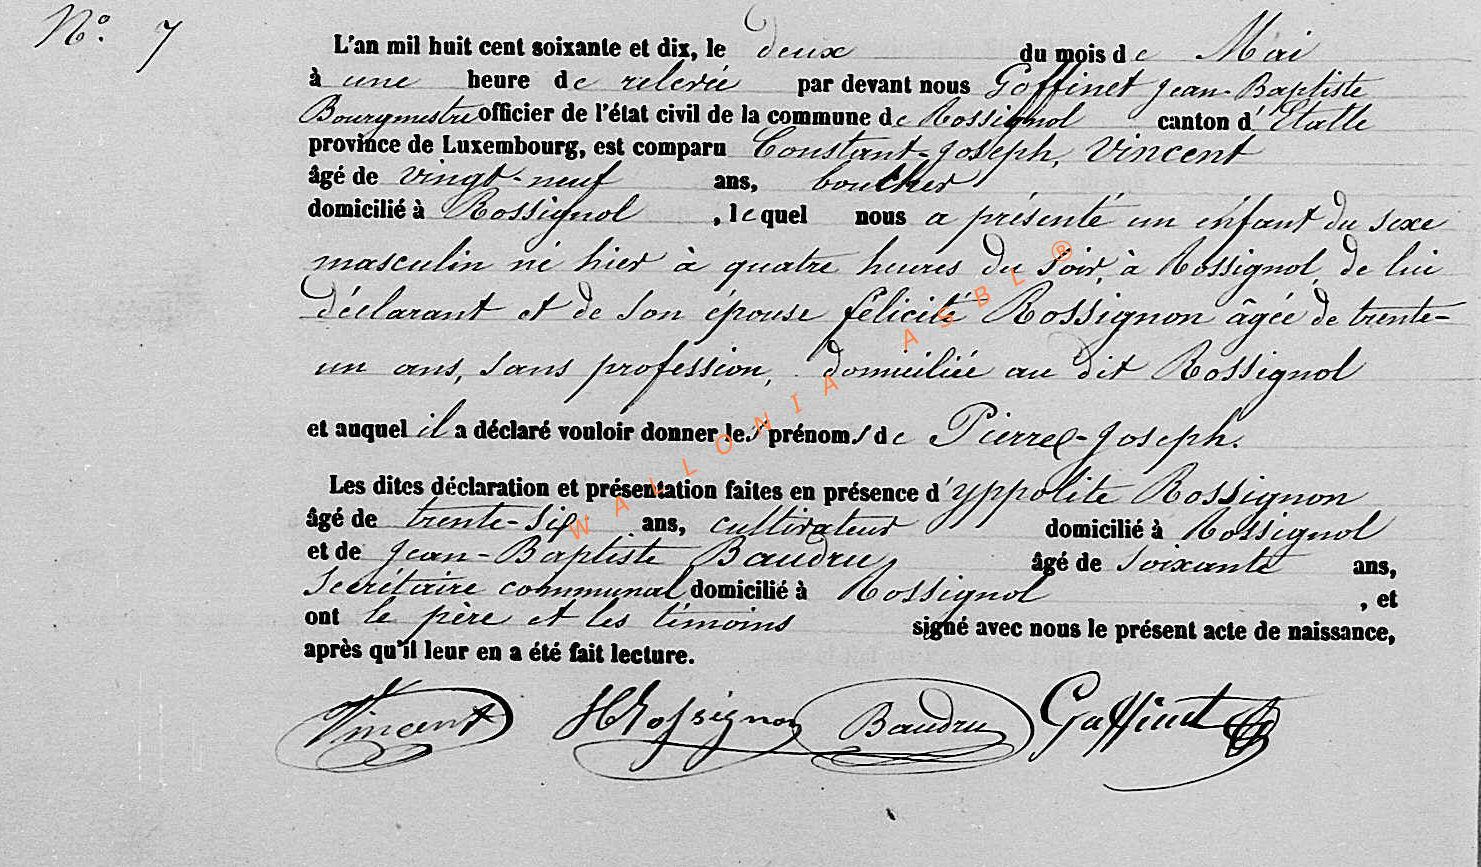 N° 7
L'an mil huit cent soixante et dix, le deux du mois de Mai
à une heure de relevée par devant nous Goffinet Jean-Baptiste
Bourgmestre officier de l'état civil de la commune de Rossignol canton d'Etalle
province de Luxembourg, est comparu Constant-Joseph, Vincent
âgé de vingt-neuf ans, boucher
domicilié à Rossignol, lequel nous a présenté un enfant du sexe
masculin né hier à quatre heures du soir, à Rossignol, de lui
déclarant et de son épouse félicité Rossignon âgée de trente-
un ans, sans profession, domiciliée au dit Rossignol
et auquel il a déclaré vouloir donner les prénoms de Pierre-Joseph.
Les dites déclaration et présentation faites en présence d'yppolite Rossignon
âgé de trente-six ans, cultivateur domicilié à Rossignol
et de Jean-Baptiste Baudru, âgé de soixante ans,
Secrétaire communal domicilié à Rossignol, et
ont le père et les témoins signé avec nous le présent acte de naissance,
après qu'il leur en a été fait lecture.
Vincent HRossignon Baudru Goffinet
WALLONIA ASBL ®